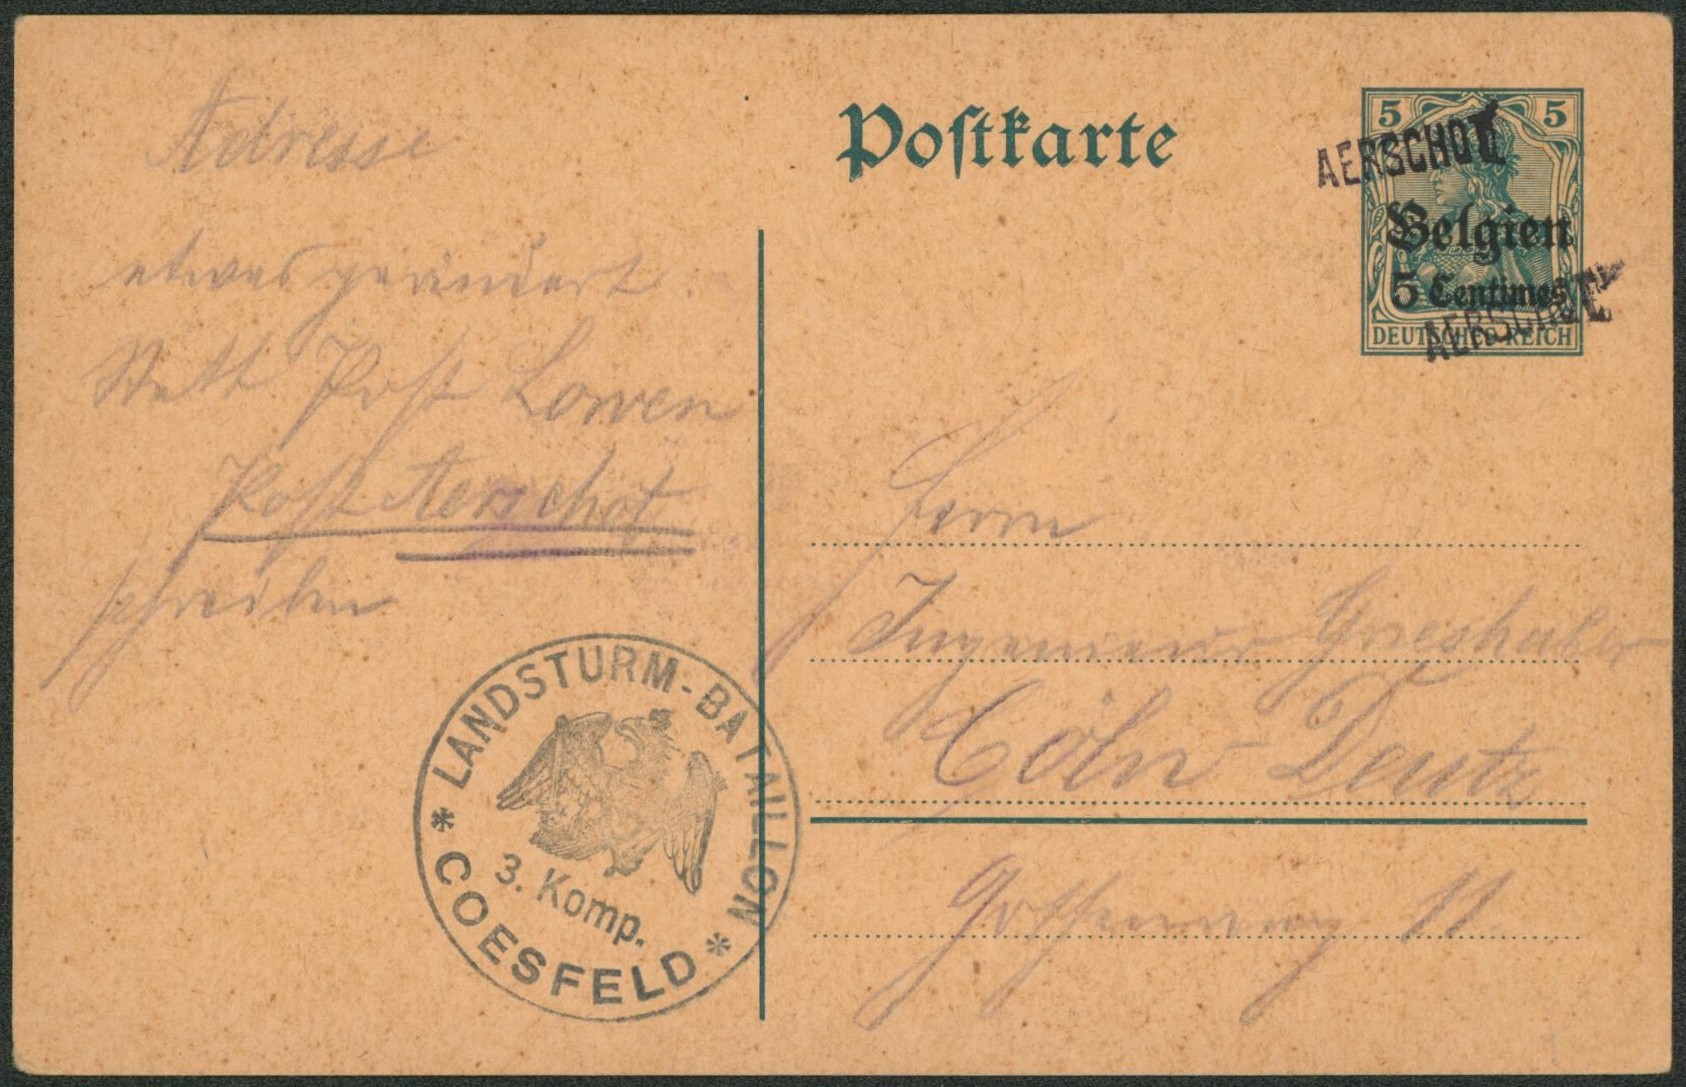 Adresse
etwas geändert.
Statt Post Löwen
Post Aerschot
schreiben
Postkarte
5 5
AERSCHOT
Belgien
5 Centimes
AERSCHOT
DEUTSCHES REICH
Herrn
Ingenieur Grieshaber
Cöln Deutz
11
* LANDSTURM-BATAILLON *
3. Komp.
COESFELD